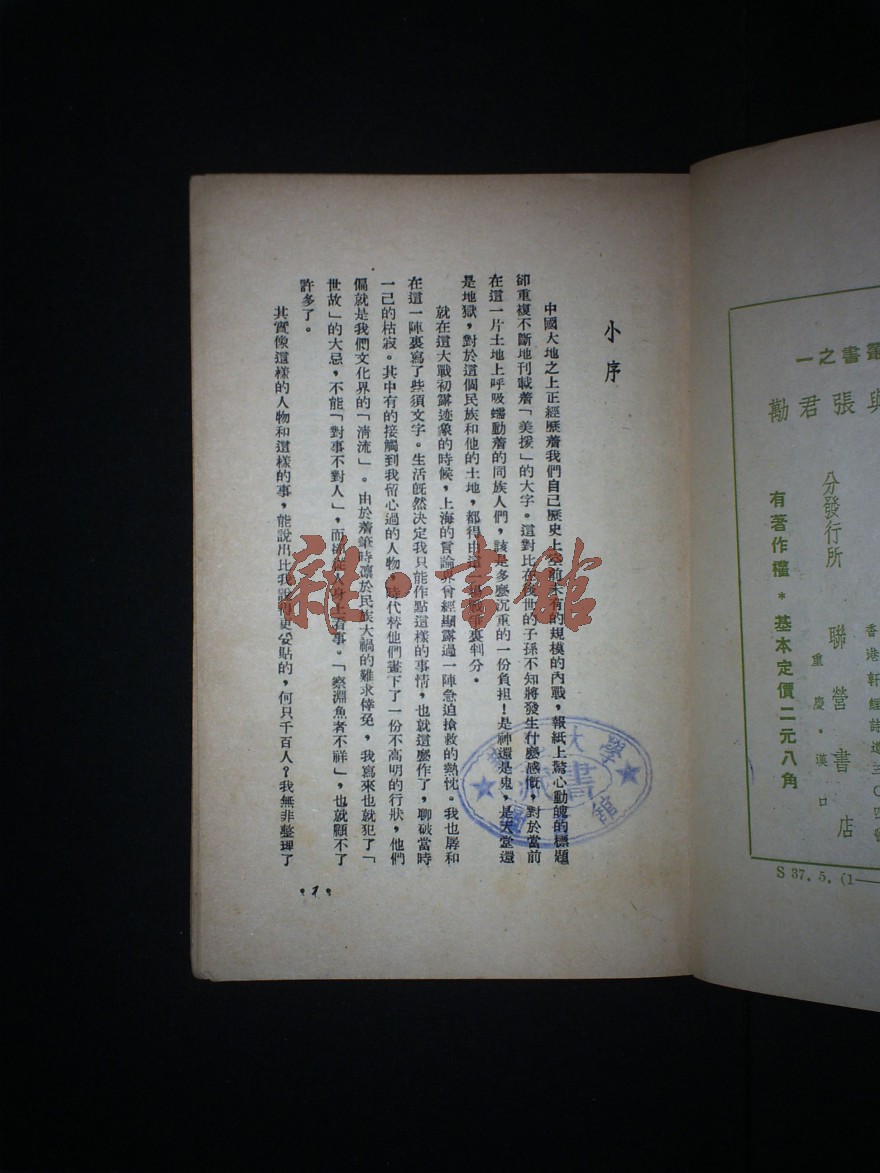 小序
中國大地之上正經歷着我們自己歷史上空前未有的規模的內戰，報紙上驚心動魄的標題
卻重複不斷地刊載着「美援」的大字。這對比在後世的子孫不知將發生什麼感慨，對於當前
在這一片土地上呼吸蠕動着的同族人們，該是多麼沉重的一份負担！是神還是鬼，是天堂還
是地獄，對於這個民族和他的土地，都得由這
裏判分。
就在這大戰初露迹象的時候，上海的言論界曾經顯露過一陣急迫搶救的熱忱。我也孱和
在這一陣裏寫了些須文字。生活既然決定我只能作點這樣的事情，也就這麼作了，聊破當時
一己的枯寂。其中有的接觸到我留心過的人物，時代替他們畫下了一份不高明的行狀，他們
偏就是我們文化界的「清流」。由於着筆時凛於民族大禍的難求倖免，我寫來也就犯了「
世故」的大忌，不能「對事不對人」，而
從人身上看事。「察淵魚者不祥」，也就顧不了
許多了。
其實像這樣的人物和這樣的事，能說出比我說得更妥貼的，何只千百人？我無非整理了
1
叢書之一
與張君勱
分發行所
聯營書店
重慶・漢口
有著作權＊基本定價二元八角
S 37. 5. (1—
雜・書館
大學
書館